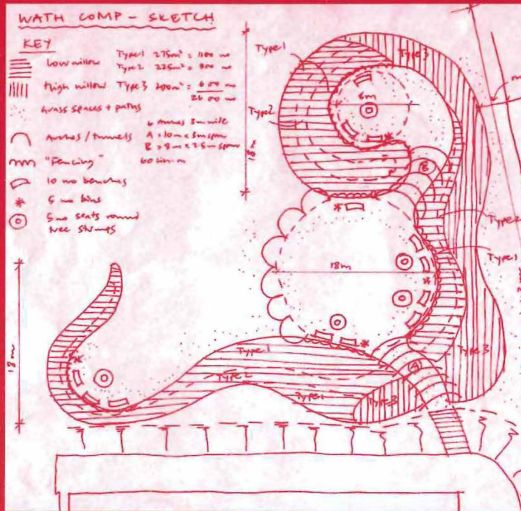 WATH COMP - SKETCH
KEY
low willow Type 1 275m² = 1100 no
Type 2 225m² = 900 no
high willow Type 3 200m² = 600 no
2600 no
grass spaces + paths
Arches / tunnels 6 arches 3m wide
A = 10m x 3m span
B = 8m x 2.5m span
"Fencing" 60 lin.m
10 no benches
5 no seats round
tree stumps
Type 1
Type 3
Type 2
6m
18m
B
Type 2
Type 1
18m
18m
Type 1
Type 2
Type 1
A
Type 3
Type 3